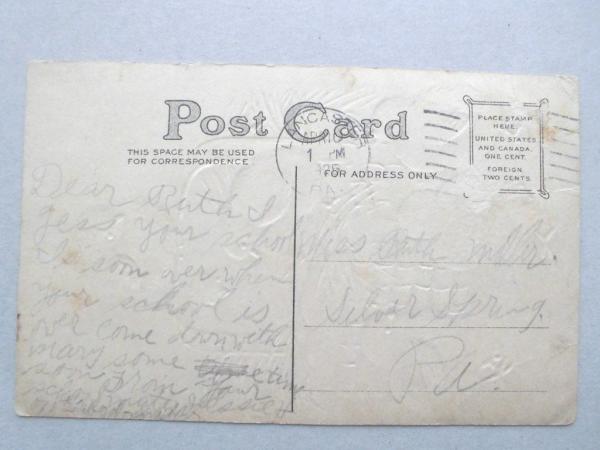 Post Card
THIS SPACE MAY BE USED
FOR CORRESPONDENCE
FOR ADDRESS ONLY
PLACE STAMP
HERE
UNITED STATES
AND CANADA.
ONE CENT.
FOREIGN
TWO CENTS.
LANCASTER
1 PM
PA.
Dear Ruth I
gess your school
is soon over when
your school is
over come down with
mary some
from your
Miss Ruth
Silver Spring.
Pa.